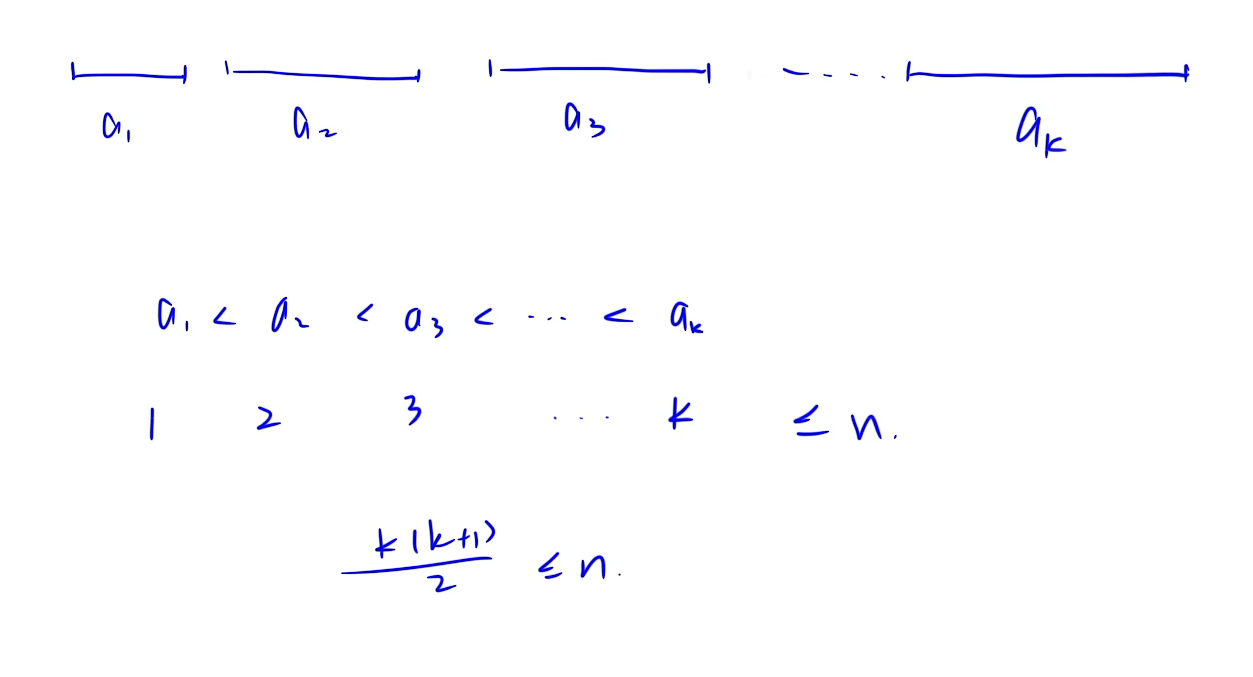 a₁ a₂ a₃ ---- aₖ
a₁ < a₂ < a₃ < ... < aₖ
1 2 3 ... k ≤ n.
k(k+1)/2 ≤ n.